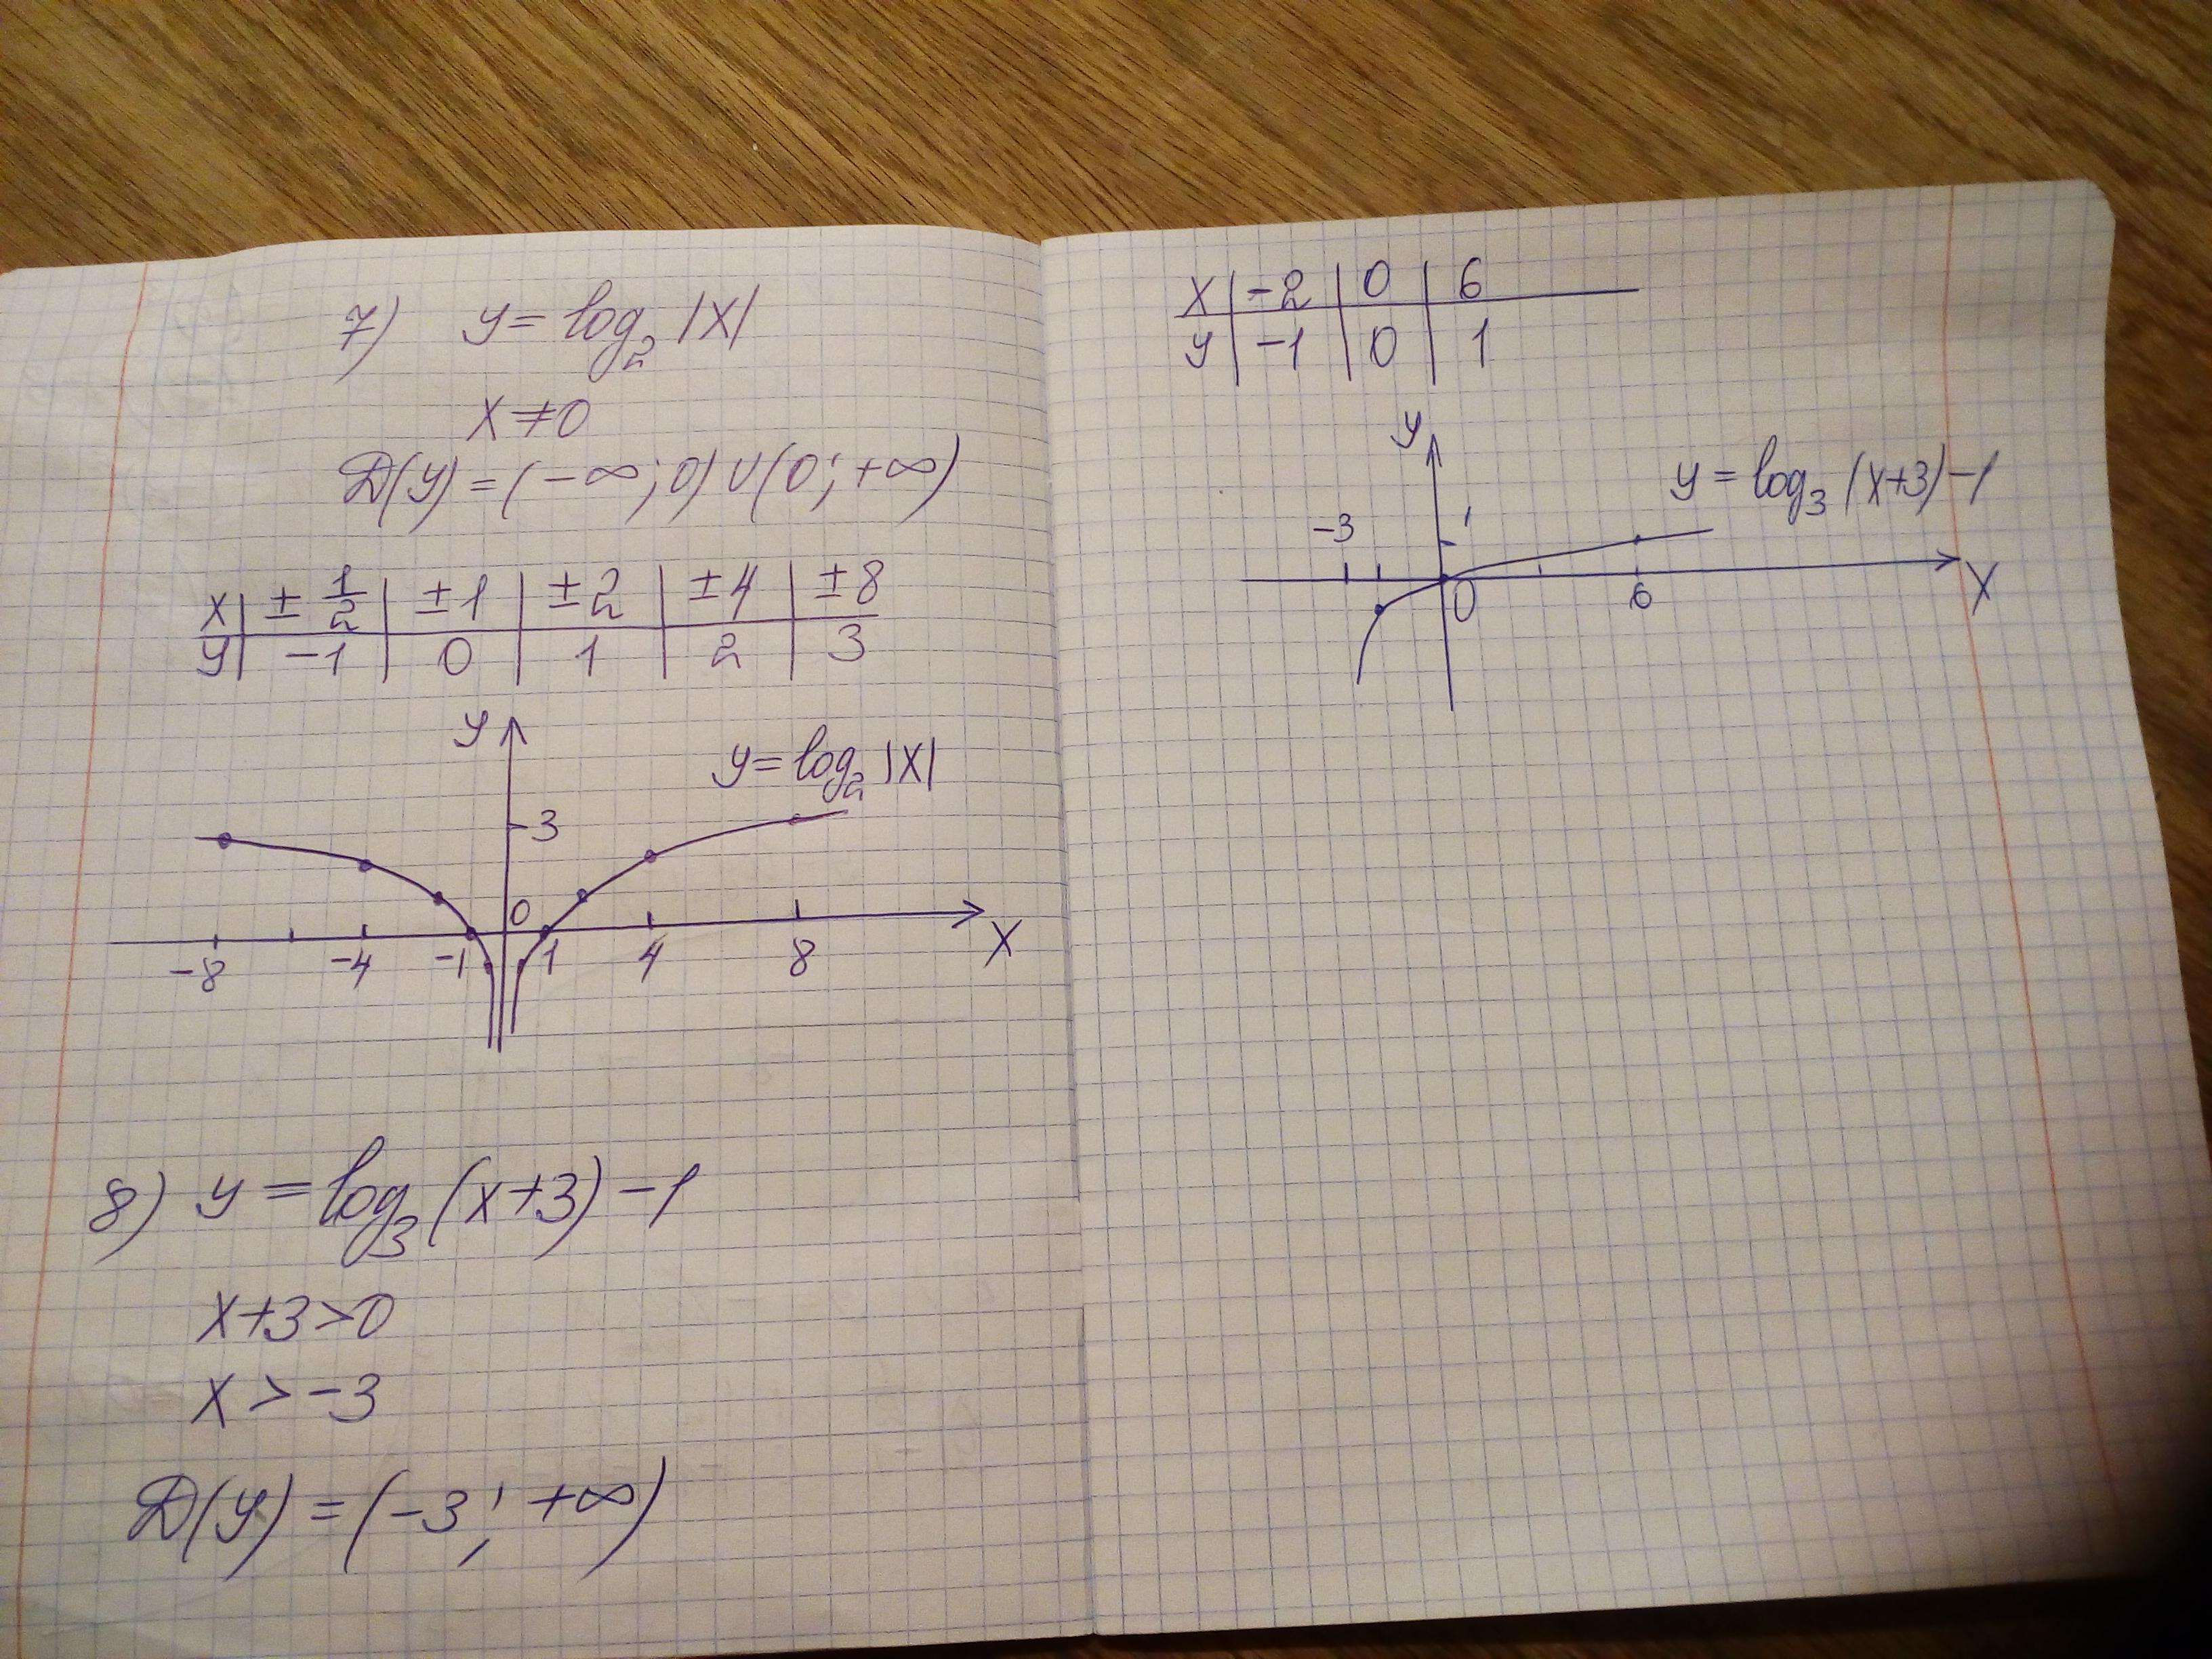 7) y = log₂ |x|
x ≠ 0
D(y) = (-∞; 0) ∪ (0; +∞)
x | ± 1/2 | ±1 | ±2 | ±4 | ±8
y | -1 | 0 | 1 | 2 | 3
y
y = log₂ |x|
3
0
x
-8 -4 -1 1 4 8
8) y = log₃ (x+3) - 1
x+3>0
x > -3
D(y) = (-3; +∞)
x | -2 | 0 | 6
y | -1 | 0 | 1
y
y = log₃ (x+3) - 1
-3 1
0 6 x